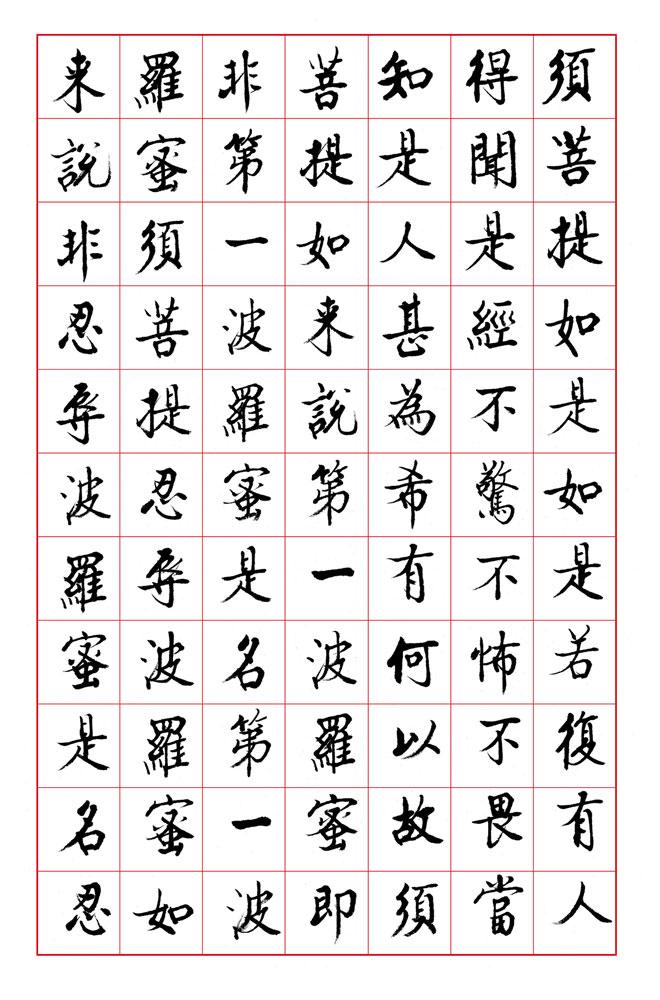 須菩提如是如是若復有人
得聞是經不驚不怖不畏當
知是人甚為希有何以故須
菩提如来說第一波羅蜜即
非第一波羅蜜是名第一波
羅蜜須菩提忍辱波羅蜜如
来說非忍辱波羅蜜是名忍